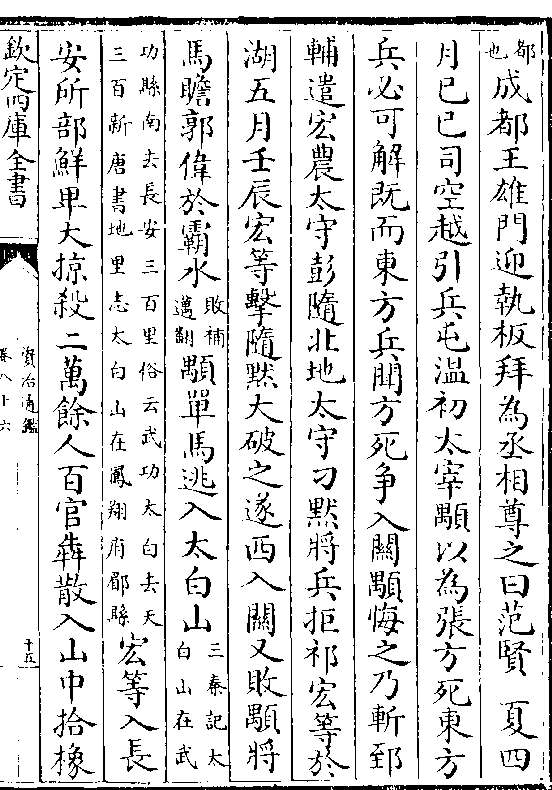 都也成都王雄門迎執板拜為丞相尊之曰范賢　夏四
月巳巳司空越引兵屯溫初太宰顒以為張方死東方
兵必可解既而東方兵聞方死争入關顒悔之乃斬郅
輔遣宏農太守彭隨北地太守刁黙將兵拒祁宏等於
湖五月壬辰宏等擊隨黙大破之遂西入關又敗顒將
馬瞻郭偉於霸水敗補邁翻顒單馬逃入太白山三秦記太白山在武
功縣南去長安三百里俗云武功太白去天三百新唐書地里志太白山在鳳翔府郿縣宏等入長
安所部鮮卑大掠殺二萬餘人百官犇散入山中拾橡
欽定四庫全書
資治通鑑
卷八十六
十五